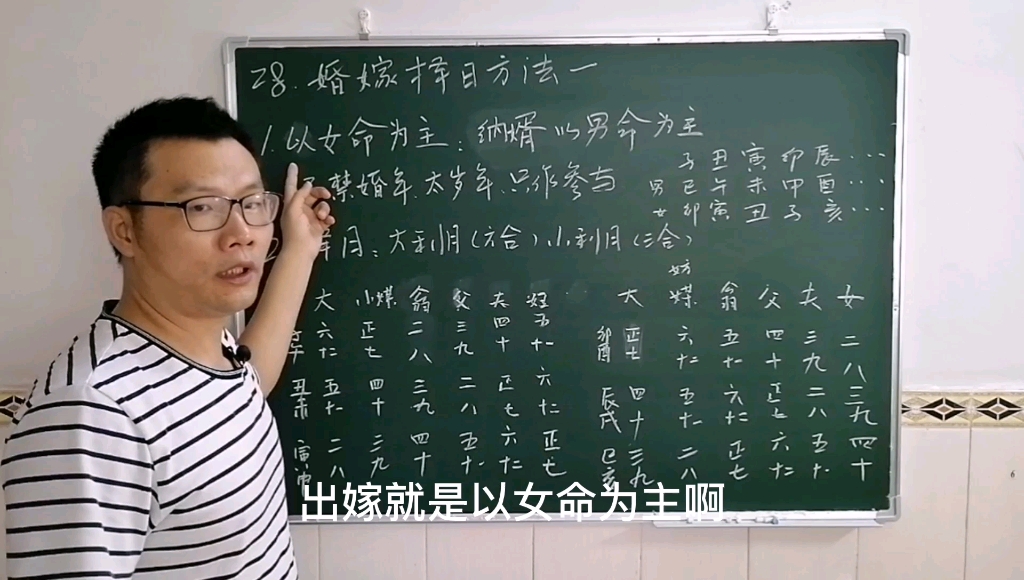 28.婚嫁择日方法一
1.以女命为主；纳婿以男命为主
禁婚年.太岁年.只作参与
子 丑 寅 卯 辰...
男 巳 午 未 申 酉...
女 卯 寅 丑 子 亥...
月：大利月(六合)、小利月(三合)
大 小媒 翁 父 夫 妇
六 正 二 三 四 五
午 十二 七 八 九 十 十一
丑 五 四 三 二 正 六
未 十一 十 九 八 七 十二
寅 二 三 四 五 六 正
申 八 九 十 十一 十二 七
妨
大 媒 翁 父 夫 女
卯 正 六 五 四 三 二
酉 七 十二 十一 十 九 八
辰 四 五 六 正 二 三
戌 十 十一 十二 七 八 九
巳 三 二 正 六 五 四
亥 九 八 七 十二 十一 十
出嫁就是以女命为主啊